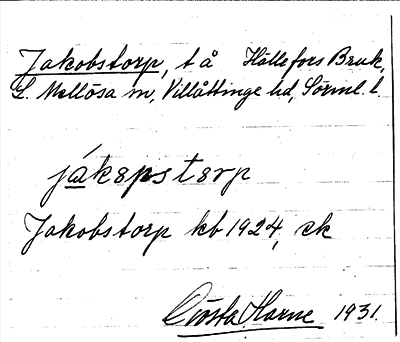 Jakobstorp, t å Hällefors Bruk,
L. Mellösa sn, Villåttinge hd, Sörml. l.
jákɐpstɐrp
Jakobstorp kb 1924, ek
Gösta Harne 1931.